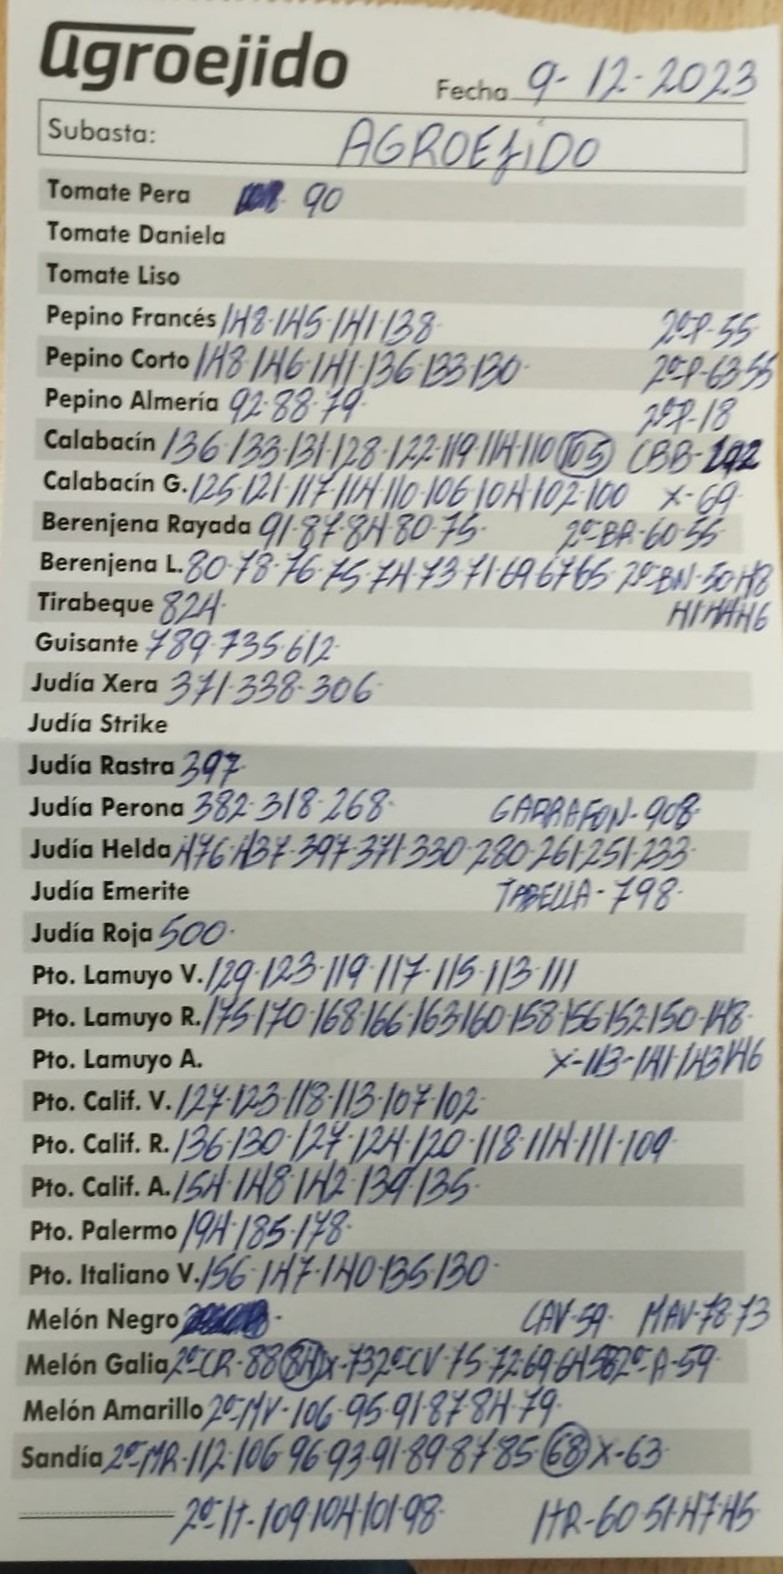 agroejido
Fecha 9-12-2023
Subasta: AGROEJIDO
Tomate Pera 90
Tomate Daniela
Tomate Liso
Pepino Francés 148·145·141·138· 2ºP-55
Pepino Corto 148·146·141·136·133·130· 2ºP-63·55
Pepino Almería 92·88·79· 2ºP-18
Calabacín 136·133·131·128·122·119·114·110 105 CBB-
Calabacín G. 125·121·117·114·110·106·104·102·100 X-69
Berenjena Rayada 91·87·84·80·75· 2ºBR-60·55
Berenjena L. 80·78·76·75·74·73·71·69·67·65 2ºBN-50·48
Tirabeque 824·
Guisante 789·735·612·
Judía Xera 371·338·306·
Judía Strike
Judía Rastra 397
Judía Perona 382·318·268· GARRAFON-908·
Judía Helda 476·437·397·371·330·280·261·251·233
Judía Emerite TABELLA-798·
Judía Roja 500·
Pto. Lamuyo V. 129·123·119·117·115·113·111
Pto. Lamuyo R. 175·170·168·166·163·160·158·156·152·150·148·
Pto. Lamuyo A. X-113-141·143·146
Pto. Calif. V. 127·123·118·113·107·102
Pto. Calif. R. 136·130·127·124·120·118·114·111·109
Pto. Calif. A. 154·148·142·139·135·
Pto. Palermo 194·185·178·
Pto. Italiano V. 156·147·140·135·130·
Melón Negro CAV-59· MAV-78·73
Melón Galia 2ºCR-88 84 X-73 2ºCV-75·72·69·64 2ºA-59·
Melón Amarillo 2ºMV-106·95·91·87·84·79·
Sandía 2ºMR-112·106·96·93·91·89·87·85 68 X-63
2ºIT-109·104·101·98· ITR-60·51·47·45